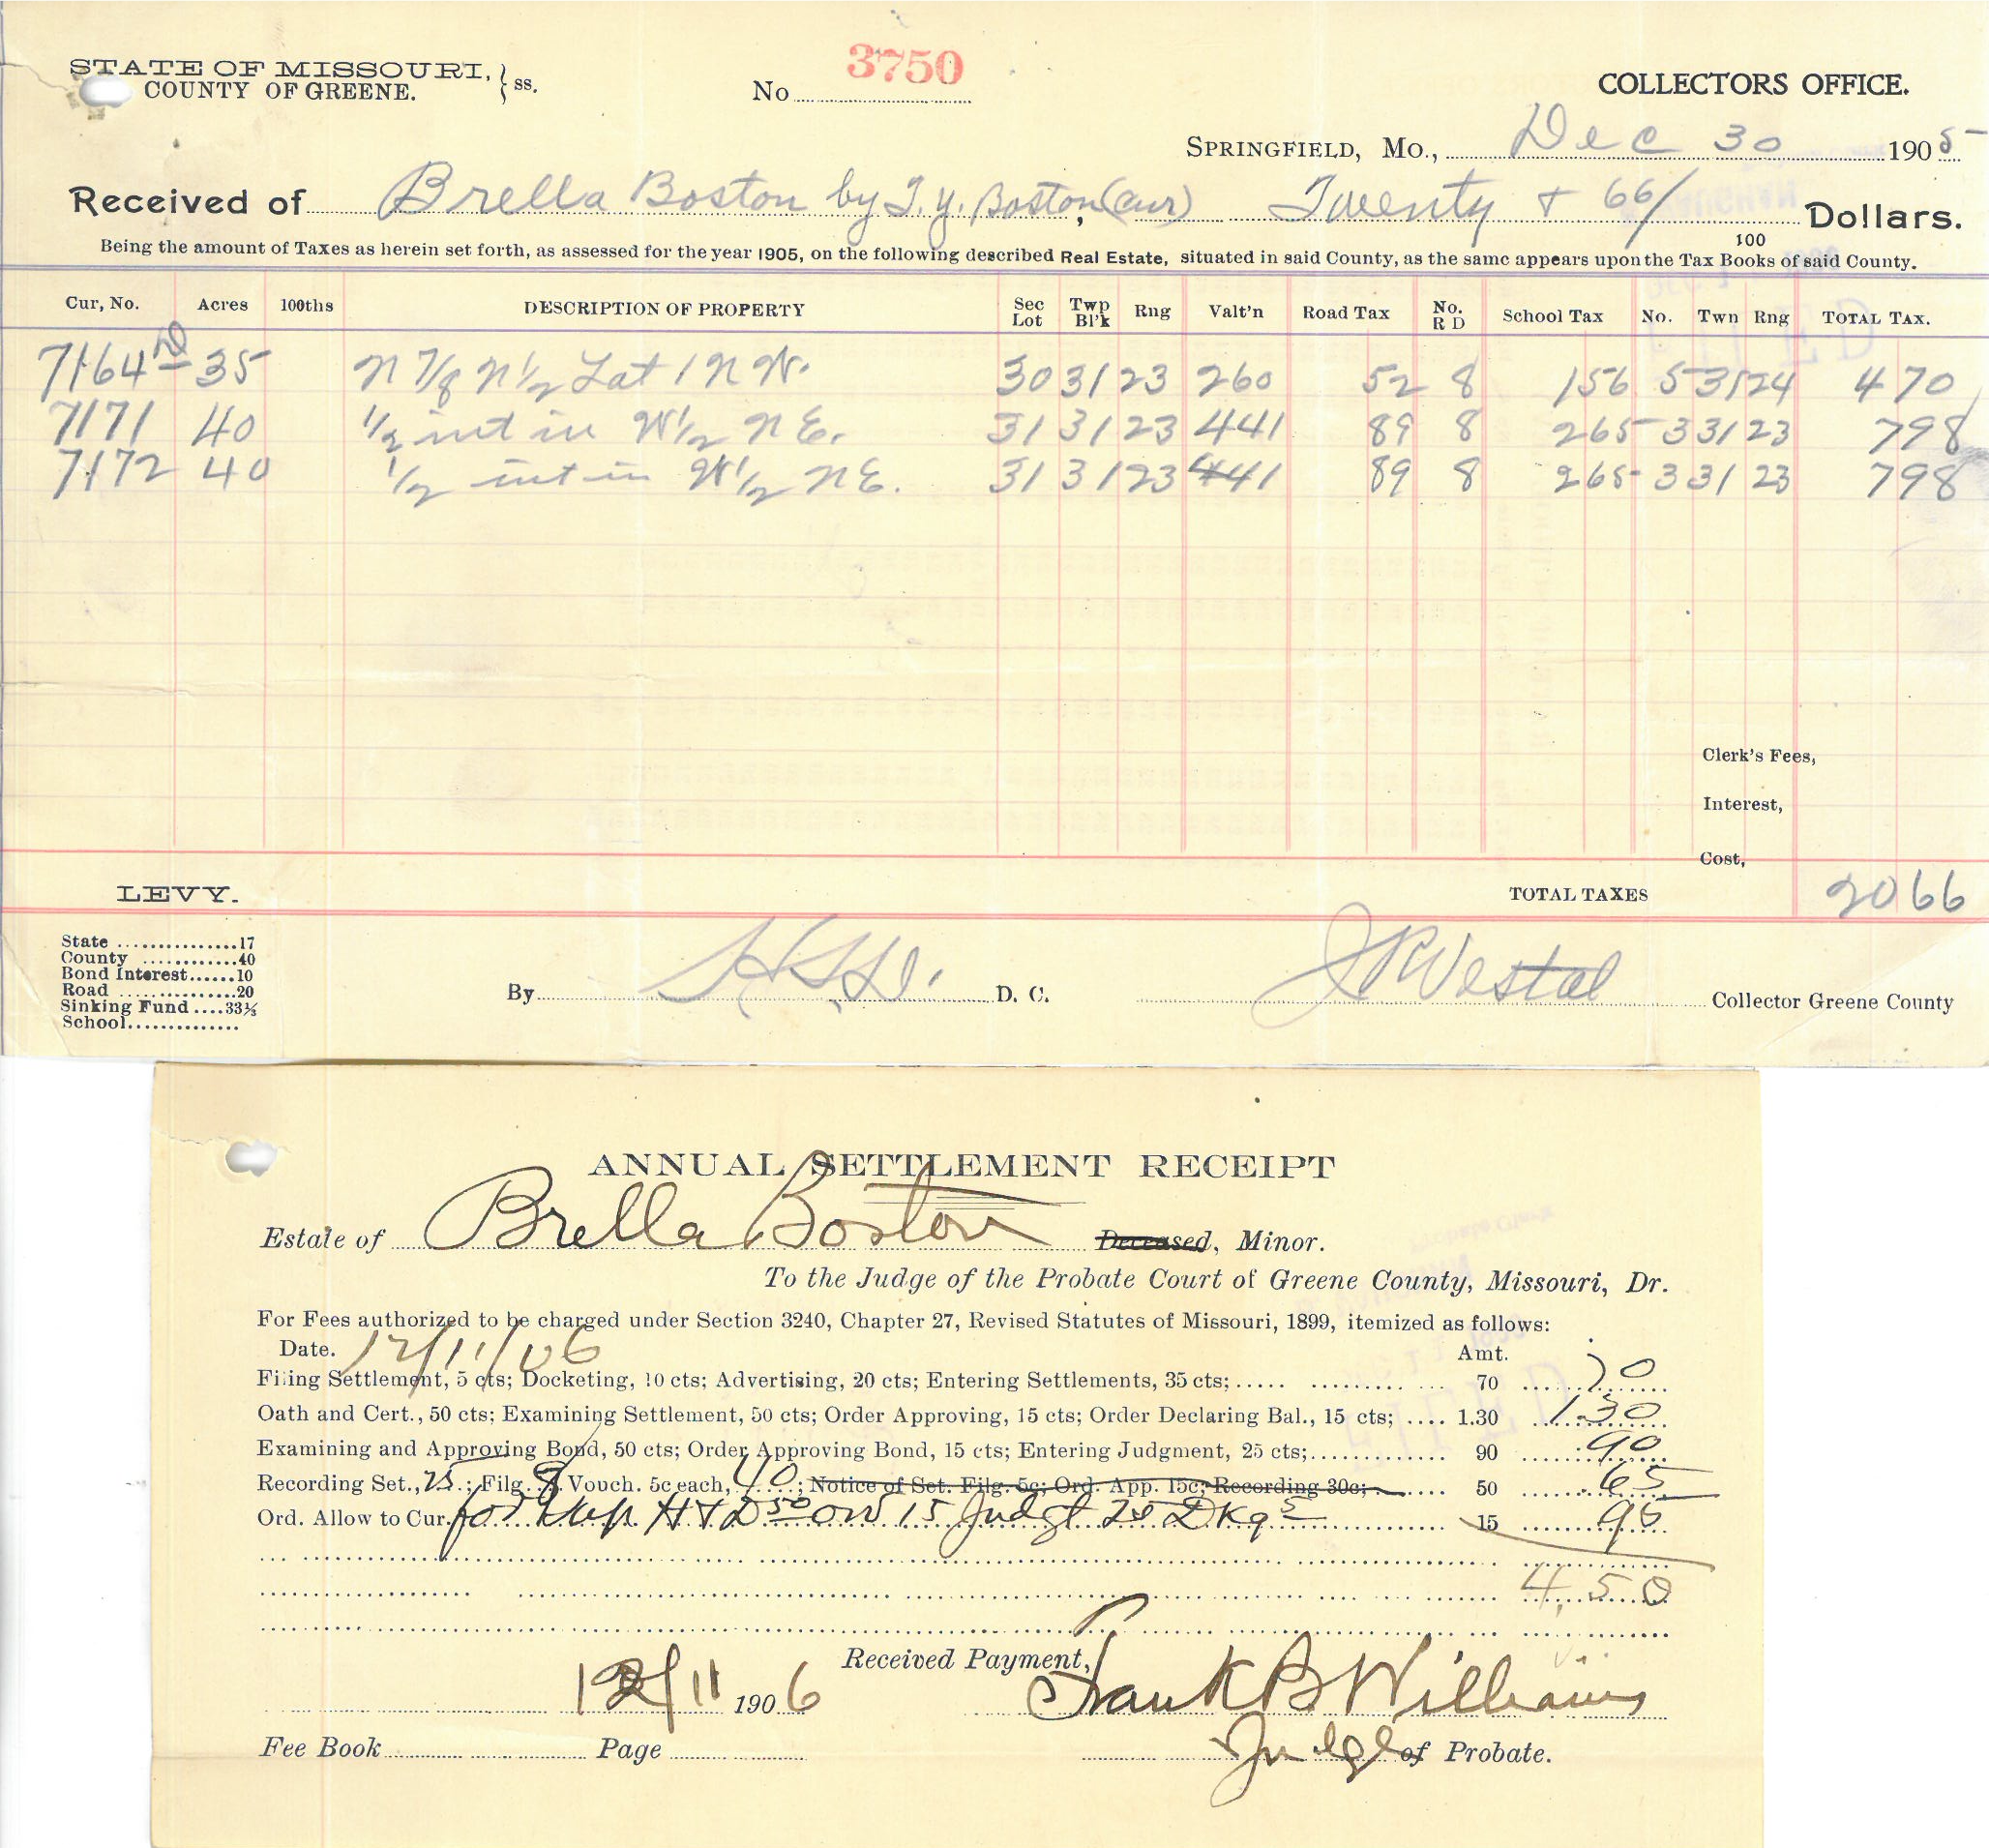 STATE OF MISSOURI, } ss.
COUNTY OF GREENE.
No 3750
COLLECTORS OFFICE.
SPRINGFIELD, Mo., Dec 30 1905
Received of Brella Boston by T. Y. Boston, (Cur) Twenty + 66/100 Dollars.
Being the amount of Taxes as herein set forth, as assessed for the year 1905, on the following described Real Estate, situated in said County, as the same appears upon the Tax Books of said County.
Cur, No. Acres 100ths DESCRIPTION OF PROPERTY Sec Lot Twp Bl'k Rng Valt'n Road Tax No. R D School Tax No. Twn Rng TOTAL TAX.
7164 D 35 N 7/8 N 1/2 Lot 1 N W. 30 31 23 260 52 8 156 5 31 24 470
7171 40 1/2 int in W 1/2 N E. 31 31 23 441 89 8 265 3 31 23 798
7172 40 1/2 int in W 1/2 N E. 31 31 23 441 89 8 265 3 31 23 798
Clerk's Fees,
Interest,
Cost,
LEVY.
TOTAL TAXES 2066
State 17
County 40
Bond Interest 10
Road 20
Sinking Fund 33⅓
School
By D. C. Collector Greene County
ANNUAL SETTLEMENT RECEIPT
Estate of Brella Boston Deceased, Minor.
To the Judge of the Probate Court of Greene County, Missouri, Dr.
For Fees authorized to be charged under Section 3240, Chapter 27, Revised Statutes of Missouri, 1899, itemized as follows:
Date. 12/11/06 Amt.
Filing Settlement, 5 cts; Docketing, 10 cts; Advertising, 20 cts; Entering Settlements, 35 cts; 70 70
Oath and Cert., 50 cts; Examining Settlement, 50 cts; Order Approving, 15 cts; Order Declaring Bal., 15 cts; 1.30 1.30
Examining and Approving Bond, 50 cts; Order Approving Bond, 15 cts; Entering Judgment, 25 cts; 90 90
Recording Set., 25; Filg. 8 Vouch. 5c each, 40; Notice of Set. Filg. 5c; Ord. App. 15c; Recording 30c; 50 65
Ord. Allow to Cur. for H + D 50 ord 15 Judgt 25 Dkg 5 15 95
4.50
Received Payment,
12/11 1906 Frank B Williams
Fee Book Page Judge of Probate.